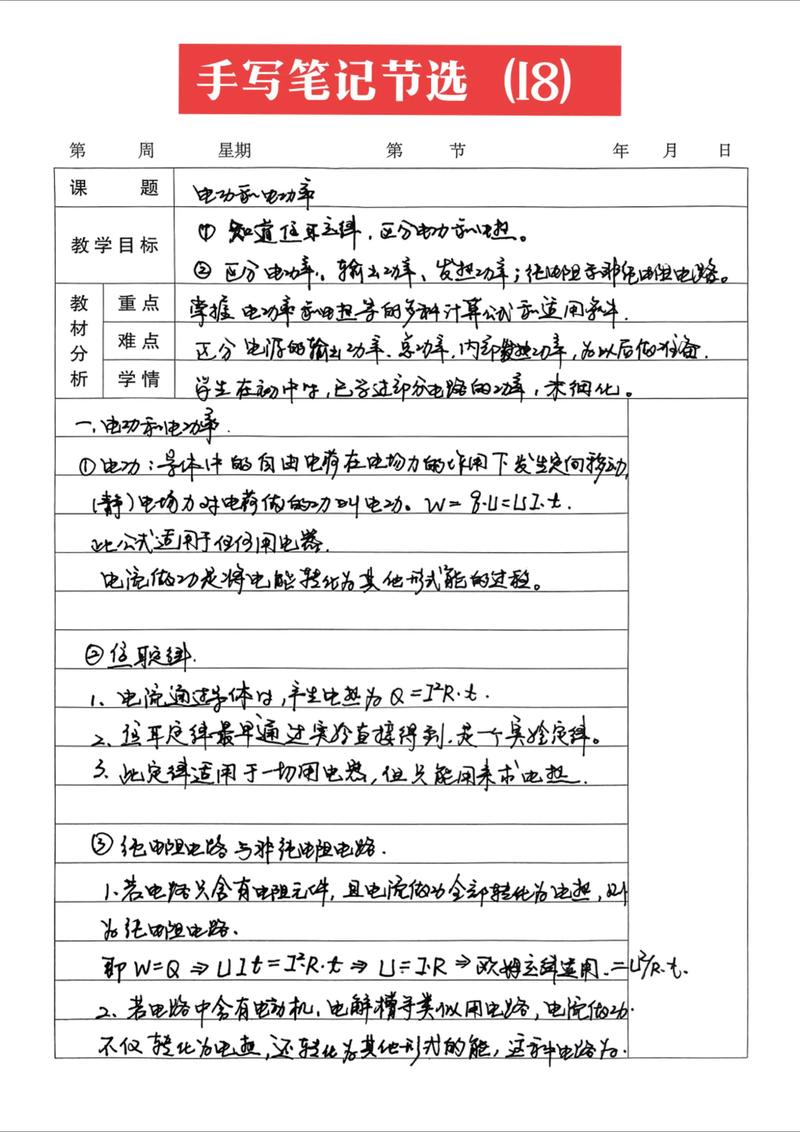 手写笔记节选（18）
第 周 星期 第 节 年 月 日
课 题 电功和电功率
教学目标 ① 知道焦耳定律，区分电功和电热。
② 区分电功率、输出功率、发热功率；纯电阻和非纯电阻电路。
教材分析 重点 掌握电功率和电热等的多种计算公式和适用条件.
难点 区分电源的输出功率、总功率，内部发热功率，为以后做准备.
学情 学生在初中时，已学过部分电路的功率，未细化。
一、电功和电功率.
①电功：导体中的自由电荷在电场力的作用下发生定向移动，
（静）电场力对电荷做的功叫电功。W=q·U=UI·t.
此公式适用于任何用电器.
电流做功是将电能转化为其他形式能的过程。
②焦耳定律.
1、电流通过导体时，产生电热为Q=I²R·t.
2、焦耳定律最早通过实验直接得到，是一个实验定律。
3、此定律适用于一切用电器，但只能用来求电热.
③纯电阻电路与非纯电阻电路.
1.若电路只含有电阻元件，且电流做功全部转化为电热，则
为纯电阻电路.
即W=Q ⇒ UIt=I²·R·t ⇒ U=I·R ⇒ 欧姆定律适用.=U²/R·t.
2、若电路中含有电动机，电解槽等类似用电路，电流做功.
不仅转化为电热，还转化为其他形式的能，这种电路为.